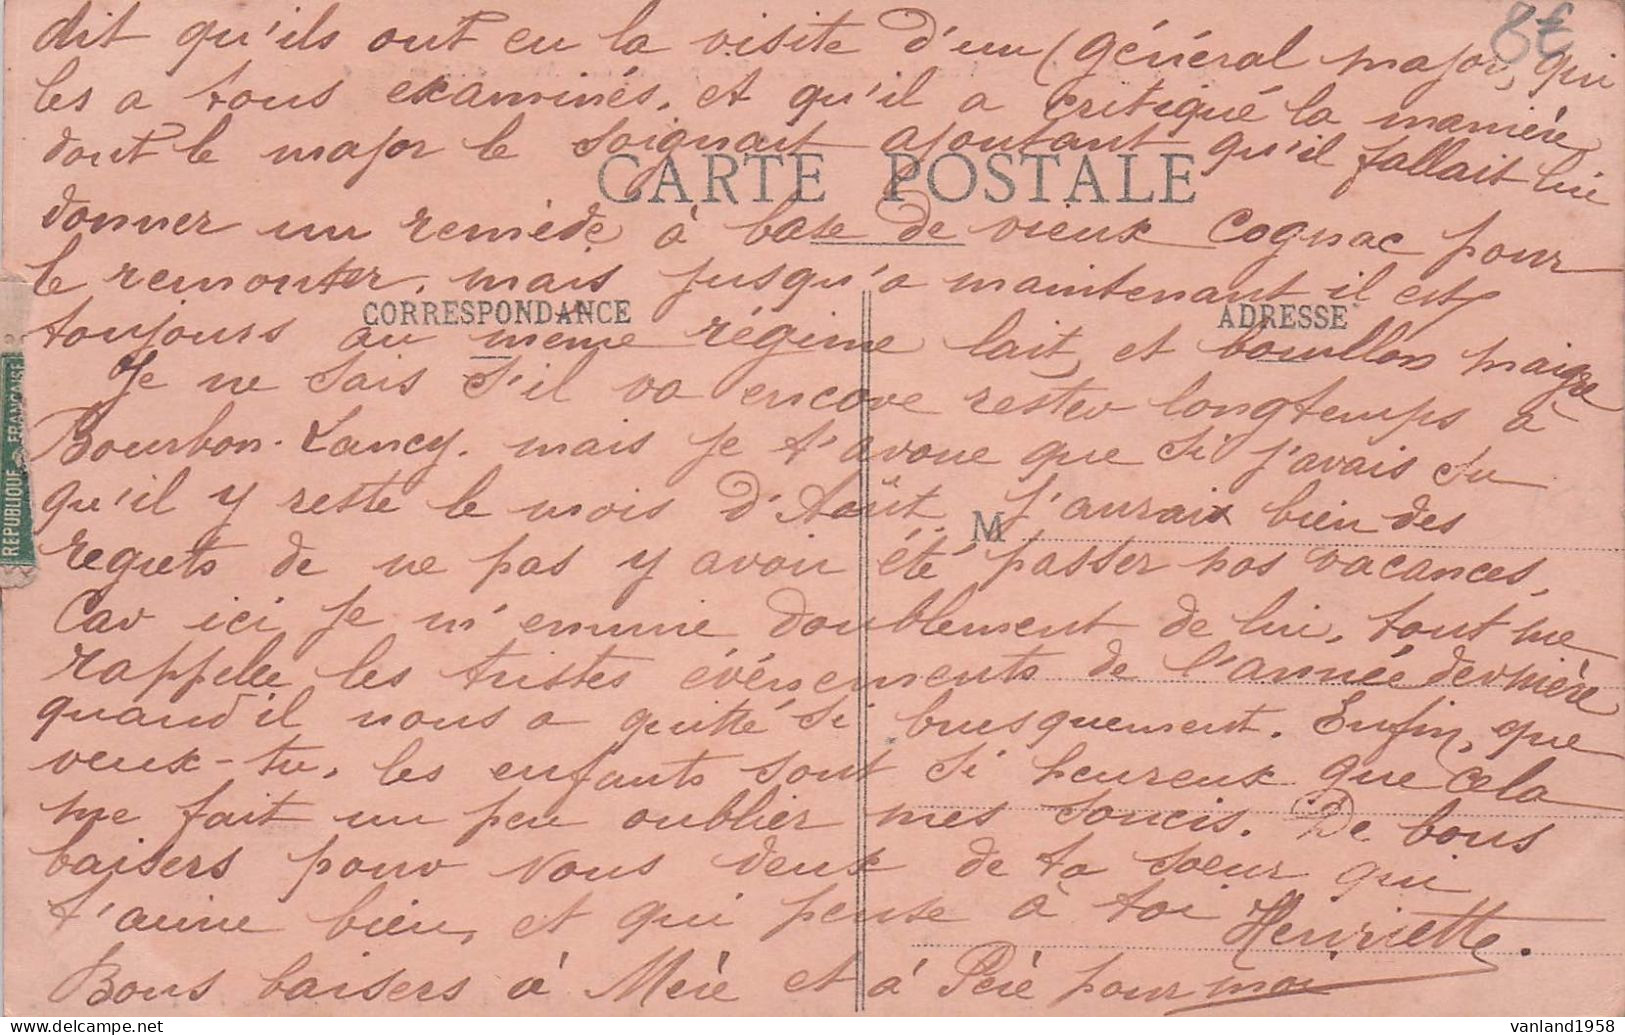 8€
dit qu'ils ont eu la visite d'un (général major, qui
les a tous examinés, et qu'il a critiqué la manière
dont le major le soignait ajoutant qu'il fallait lui
CARTE POSTALE
donner un remède à base de vieux Cognac pour
le remonter, mais jusqu'à maintenant il est
CORRESPONDANCE ADRESSE
toujours au même régime lait, et bouillon maigre
Je ne sais s'il va encore rester longtemps à
Bourbon-Lancy, mais je t'avoue que si j'avais su
qu'il y reste le mois d'Août j'aurais bien des
M
regrets de ne pas y avoir été passer nos vacances,
Car ici je m'ennuie doublement de lui, tout me
rappelle les tristes événements de l'année dernière
quand il nous a quitté si brusquement. Enfin, que
veux-tu, les enfants sont si heureux que cela
me fait un peu oublier mes soucis. De bons
baisers pour vous deux de ta soeur qui
t'aime bien, et qui pense à toi Henriette.
Bons baisers à Mère et à Père pour moi
REPUBLIQUE FRANÇAISE
vanland1958